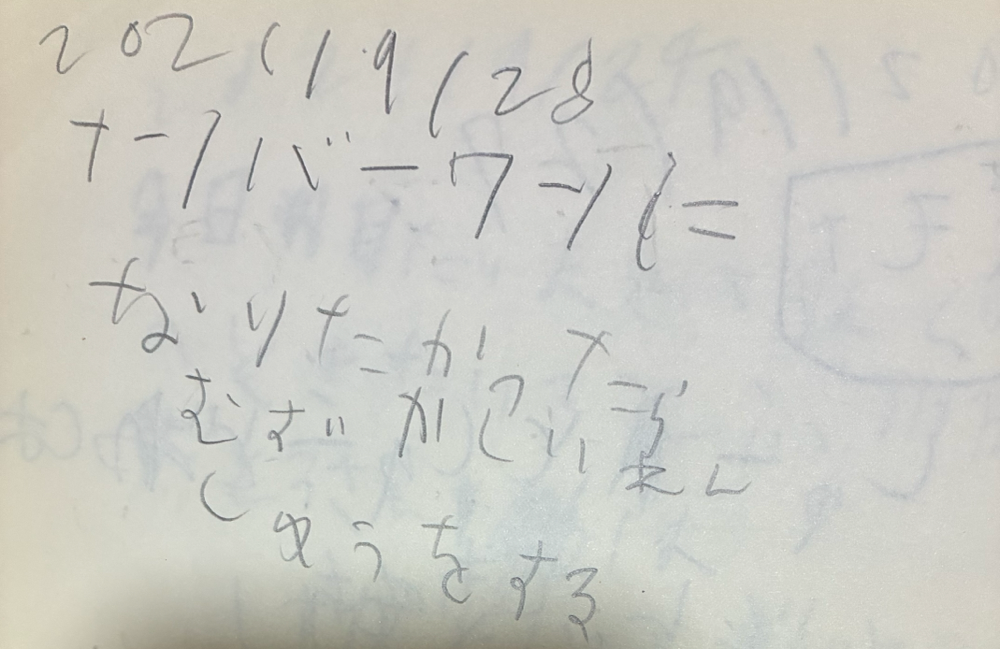 2021/9/28
ナンバーワンに
なりたかたら
むずかしいれん
しゆうをする